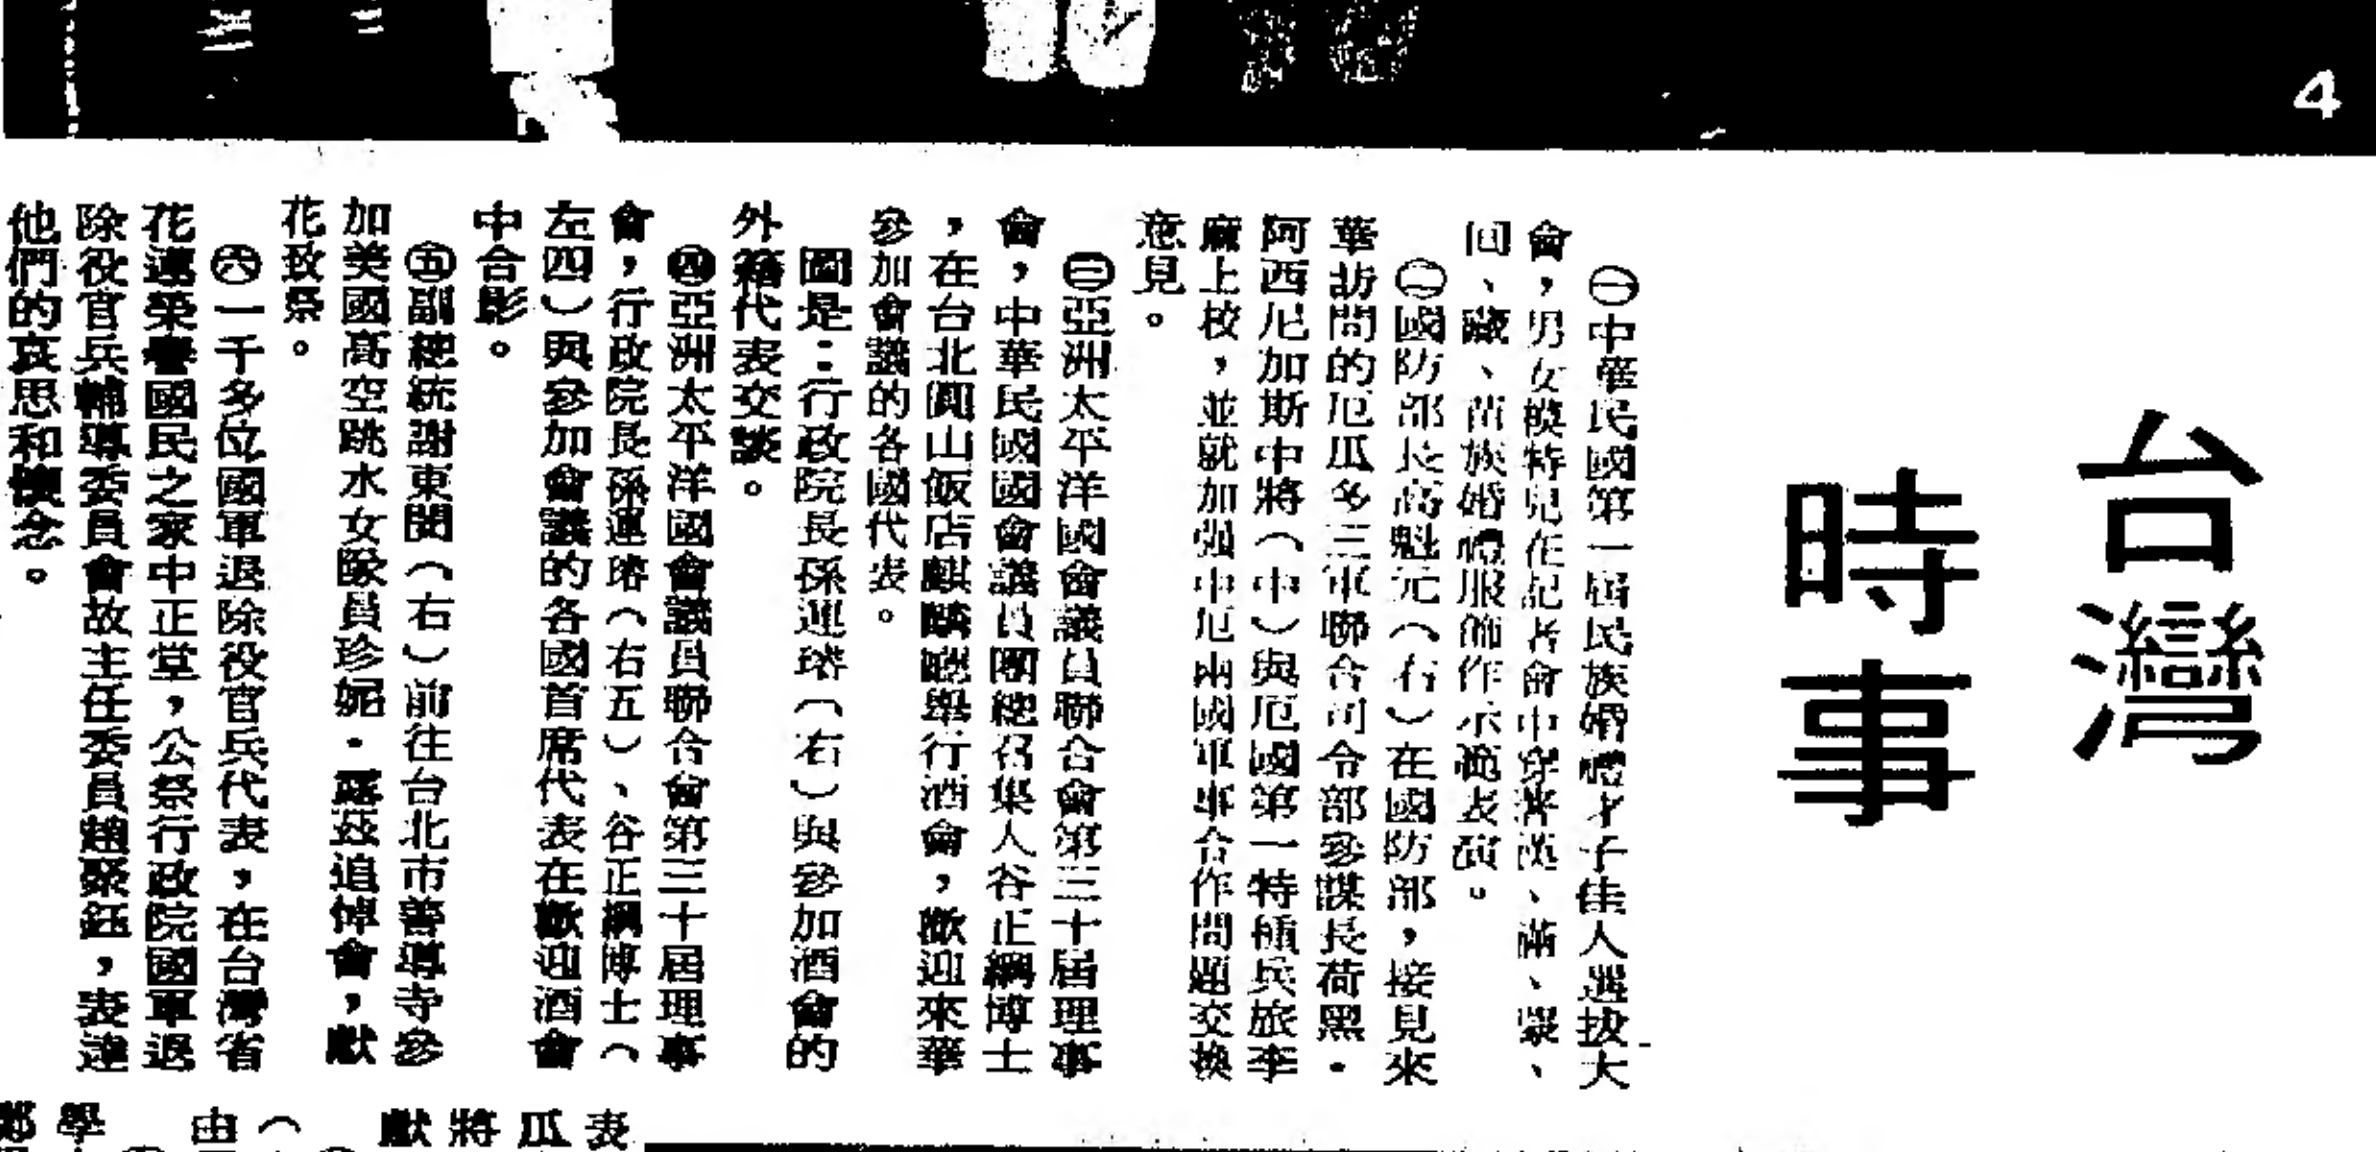 4
台灣
時事
㊀中華民國第一屆民族婚禮才子佳人選拔大
會，男女模特兒在記者會中穿著漢、滿、蒙、
回、藏、苗族婚禮服飾作示範表演。
㊁國防部長高魁元（右）在國防部，接見來
華訪問的厄瓜多三軍聯合司令部參謀長荷黑·
阿西尼加斯中將（中）與厄國第一特種兵旅李
麻上校，並就加強中厄兩國軍事合作問題交換
意見。
㊂亞洲太平洋國會議員聯合會第三十屆理事
會，中華民國國會議員團總召集人谷正綱博士
，在台北圓山飯店麒麟廳舉行酒會，歡迎來華
參加會議的各國代表。
圖是：行政院長孫運璿（右）與參加酒會的
外籍代表交談。
㊃亞洲太平洋國會議員聯合會第三十屆理事
會，行政院長孫運璿（右五）、谷正綱博士（
左四）與參加會議的各國首席代表在歡迎酒會
中合影。
㊄副總統謝東閔（右）前往台北市善導寺參
加美國高空跳水女隊員珍妮·羅茲追悼會，獻
花致祭。
㊅一千多位國軍退除役官兵代表，在台灣省
花蓮榮譽國民之家中正堂，公祭行政院國軍退
除役官兵輔導委員會故主任委員趙聚鈺，表達
他們的哀思和懷念。
表
瓜
將
獻
（
由
學